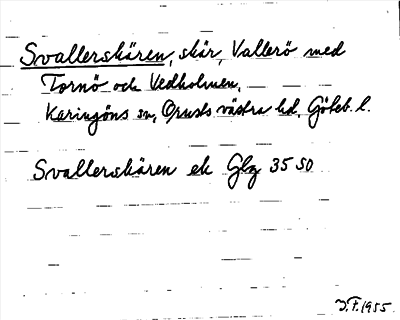 Svallerskären, skär, Vallerö med
Tornö och Vedholmen,
Käringöns sn, Orusts västra hd, Göteb. l.
Svallerskären ek Glg 35 50
J.F. 1955